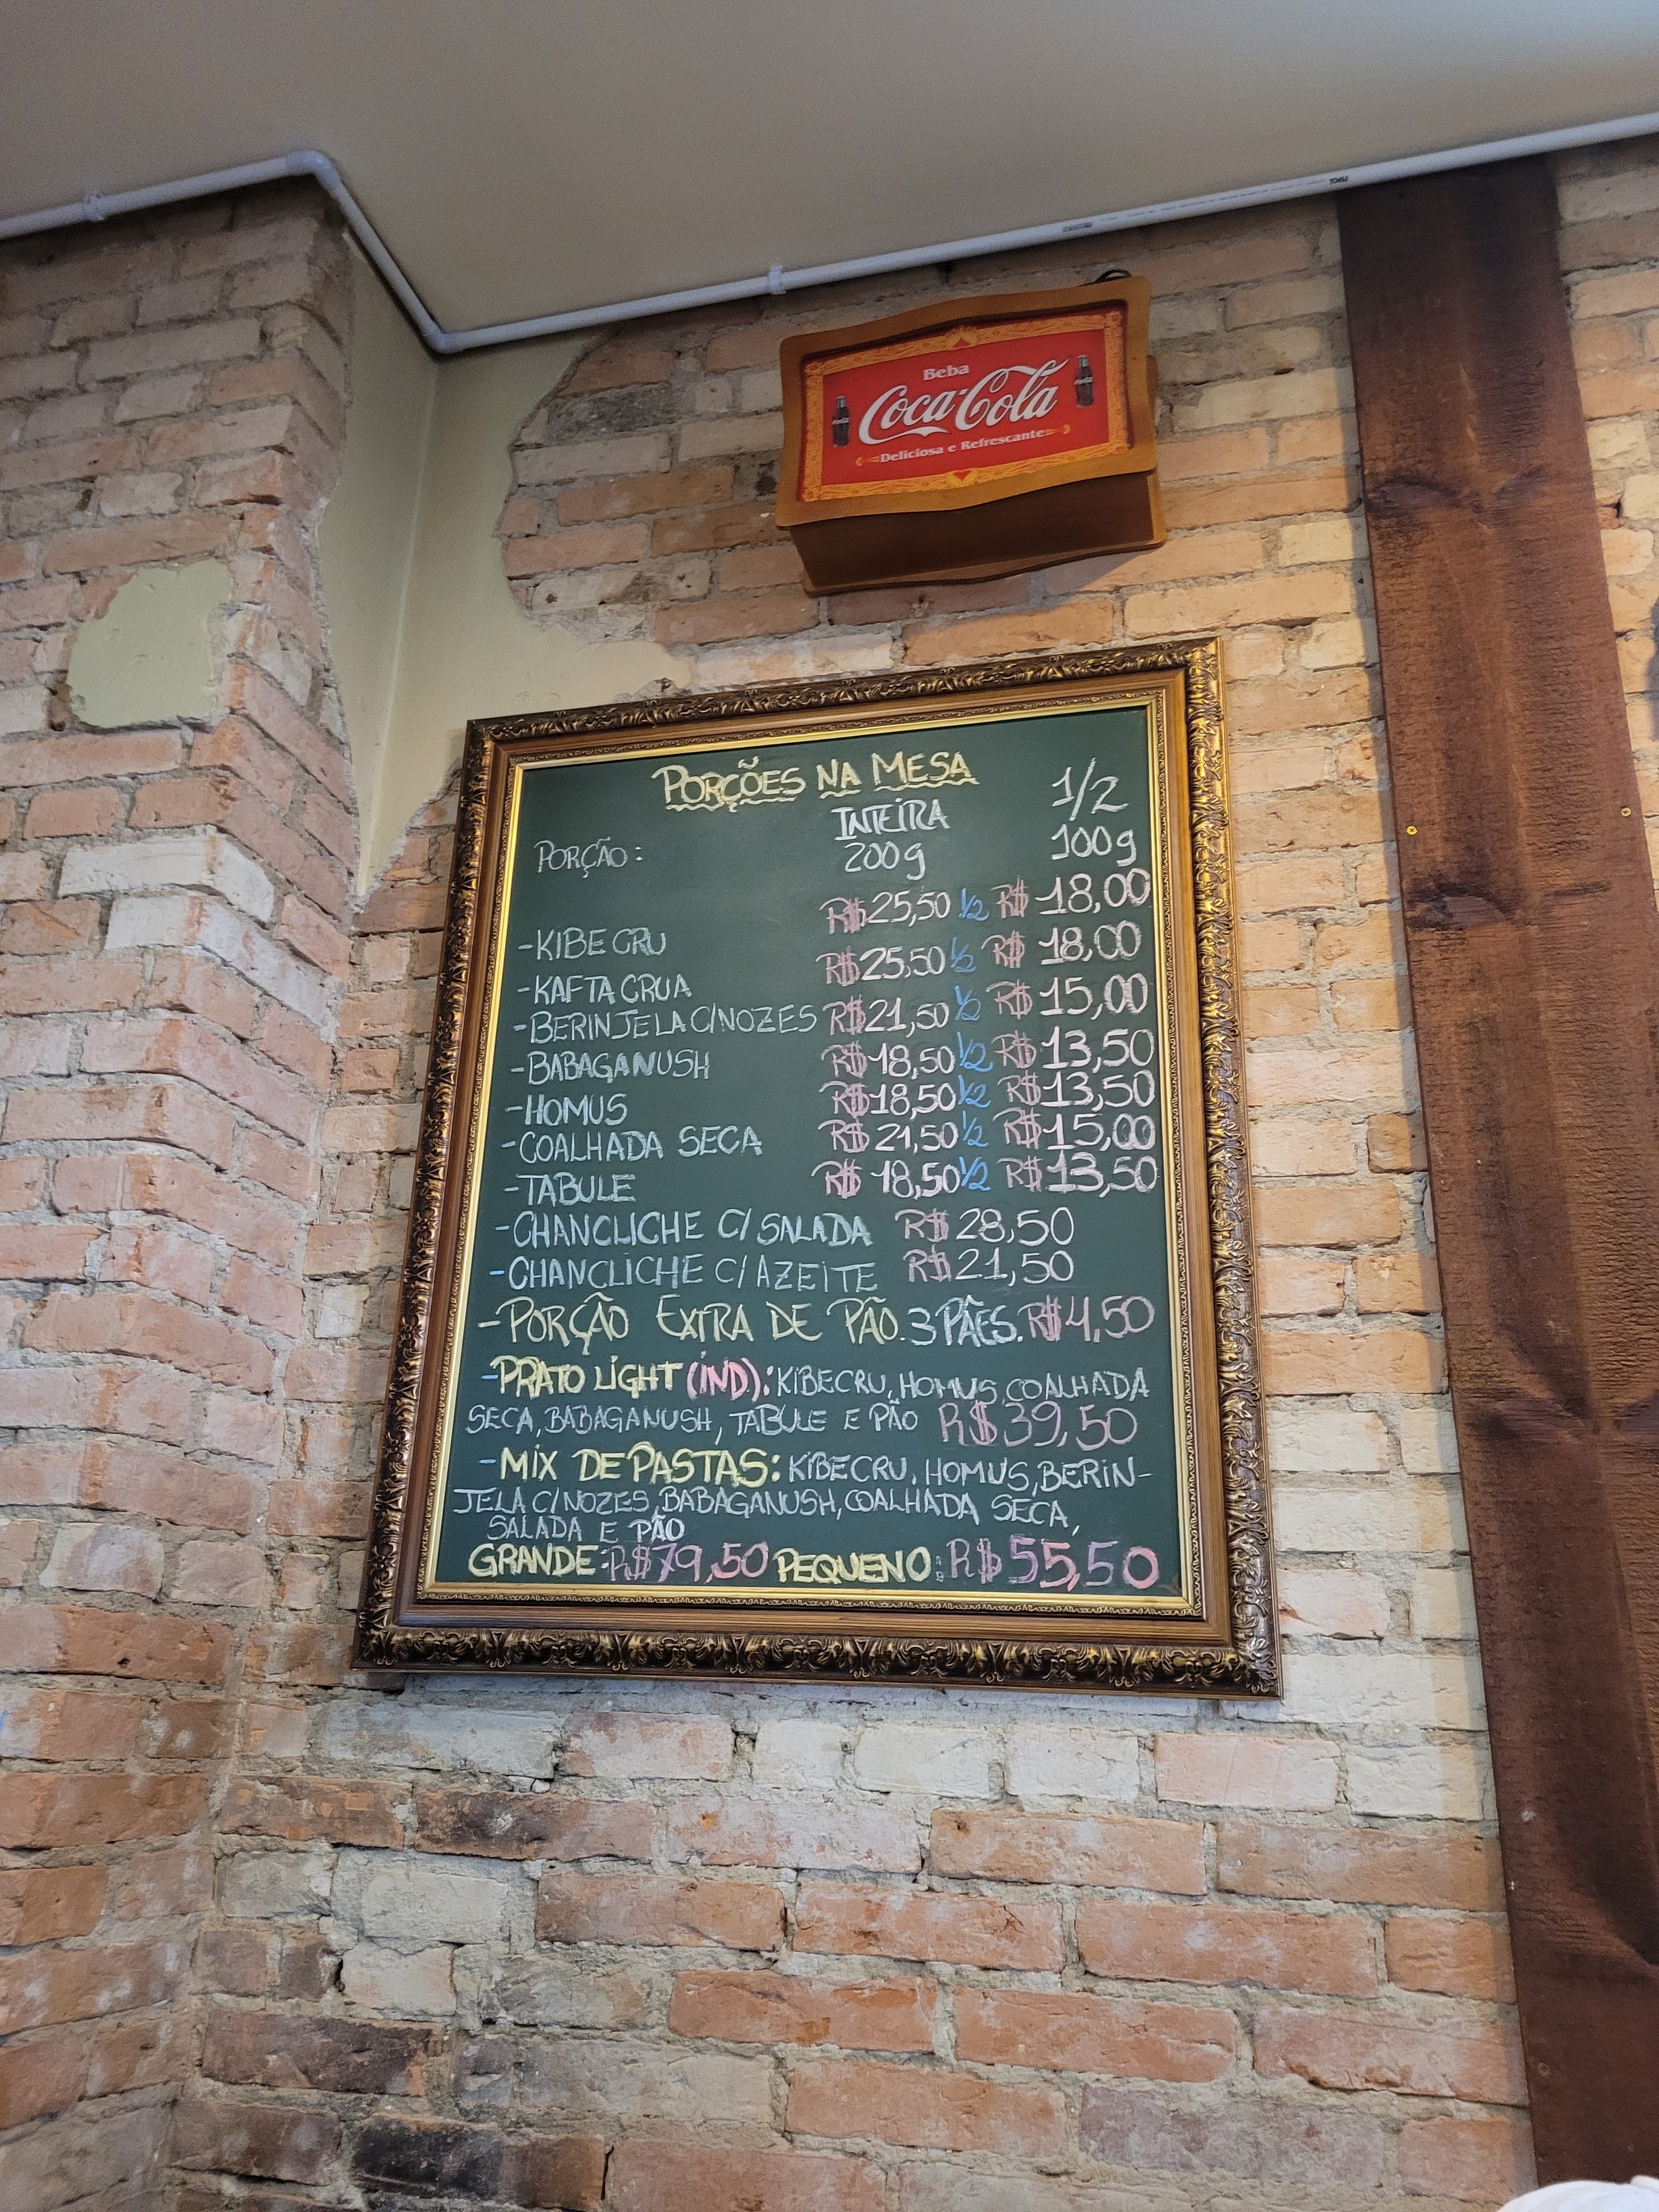 Beba
Coca-Cola
Deliciosa e Refrescante
PORÇÕES NA MESA
INTEIRA 1/2
PORÇÃO: 200g 100g
-KIBE CRU R$25,50 1/2 R$ 18,00
-KAFTA CRUA R$25,50 1/2 R$ 18,00
-BERINJELA C/NOZES R$21,50 1/2 R$ 15,00
-BABAGANUSH R$18,50 1/2 R$ 13,50
-HOMUS R$18,50 1/2 R$13,50
-COALHADA SECA R$ 21,50 1/2 R$15,00
-TABULE R$ 18,50 1/2 R$13,50
-CHANCLICHE C/SALADA R$28,50
-CHANCLICHE C/AZEITE R$21,50
-PORÇÃO EXTRA DE PÃO.3 PÃES.R$4,50
-PRATO LIGHT (IND):KIBECRU,HOMUS,COALHADA
SECA,BABAGANUSH, TABULE E PÃO R$39,50
-MIX DE PASTAS: KIBECRU, HOMUS,BERIN-
JELA C/NOZES,BABAGANUSH,COALHADA SECA,
SALADA E PÃO
GRANDE:R$79,50 PEQUENO:R$55,50